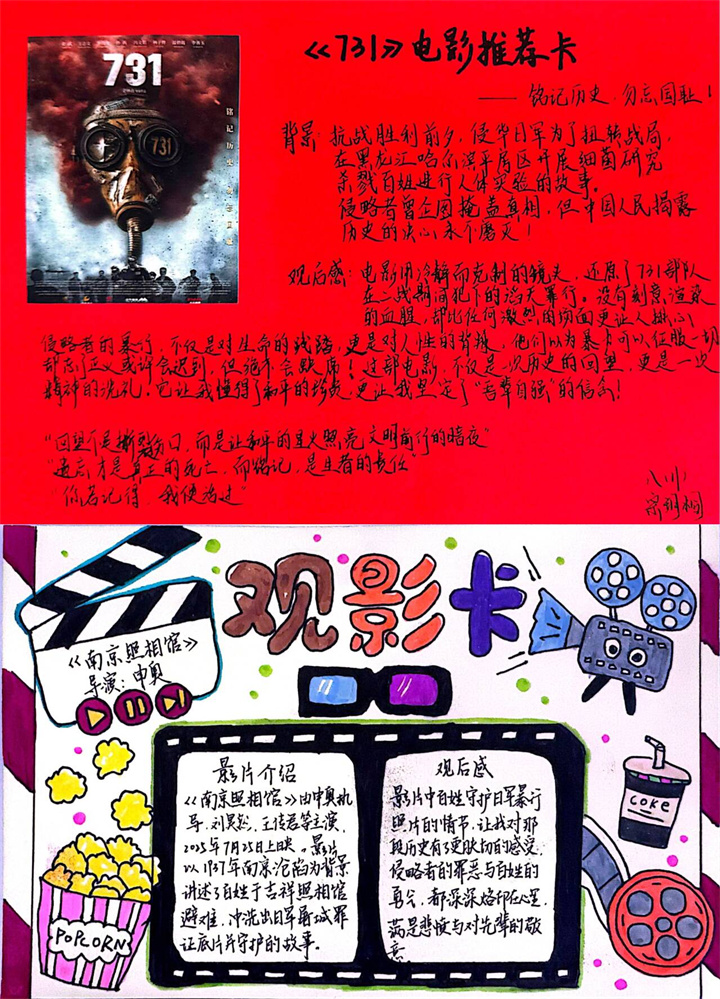 731
731
铭记历史
《731》电影推荐卡
—— 铭记历史,勿忘国耻!
背景:抗战胜利前夕,侵华日军为了扭转战局,
在黑龙江哈尔滨平房区开展细菌研究
杀戮百姓进行人体实验的故事。
侵略者曾企图掩盖真相,但中国人民揭露
历史的决心永不磨灭!
观后感:电影用冷静而克制的镜头,还原了731部队
在二战期间犯下的滔天罪行。没有刻意渲染
的血腥,却比任何激烈的场面更让人揪心
侵略者的暴行,不仅是对生命的践踏,更是对人性的背叛,他们以为暴力可以征服一切
却忘了正义或许会迟到,但绝不会缺席!这部电影,不仅是一次历史的回望,更是一次
精神的洗礼,它让我懂得了和平的珍贵,更让我坚定了“吾辈自强”的信念!
“回望不是撕裂伤口,而是让和平的星火照亮文明前行的暗夜”
“遗忘才是真正的死亡,而铭记,是生者的责任”
“你若记得,我便活过”
八(11)
观影卡
《南京照相馆》
导演:申奥
影片介绍
《南京照相馆》由申奥执
导,刘昊然、王传君等主演,
2025年7月25日上映。影片
以1937年南京沦陷为背景
讲述了百姓于吉祥照相馆
避难,冲洗出日军屠城罪
证底片并守护的故事。
观后感
影片中百姓守护日军暴行
照片的情节,让我对那
段历史有了更肤切的感受,
侵略者的罪恶与百姓的
勇气,都深深烙印在心里,
满是悲愤与对先辈的敬
意。
coke
POPCORN